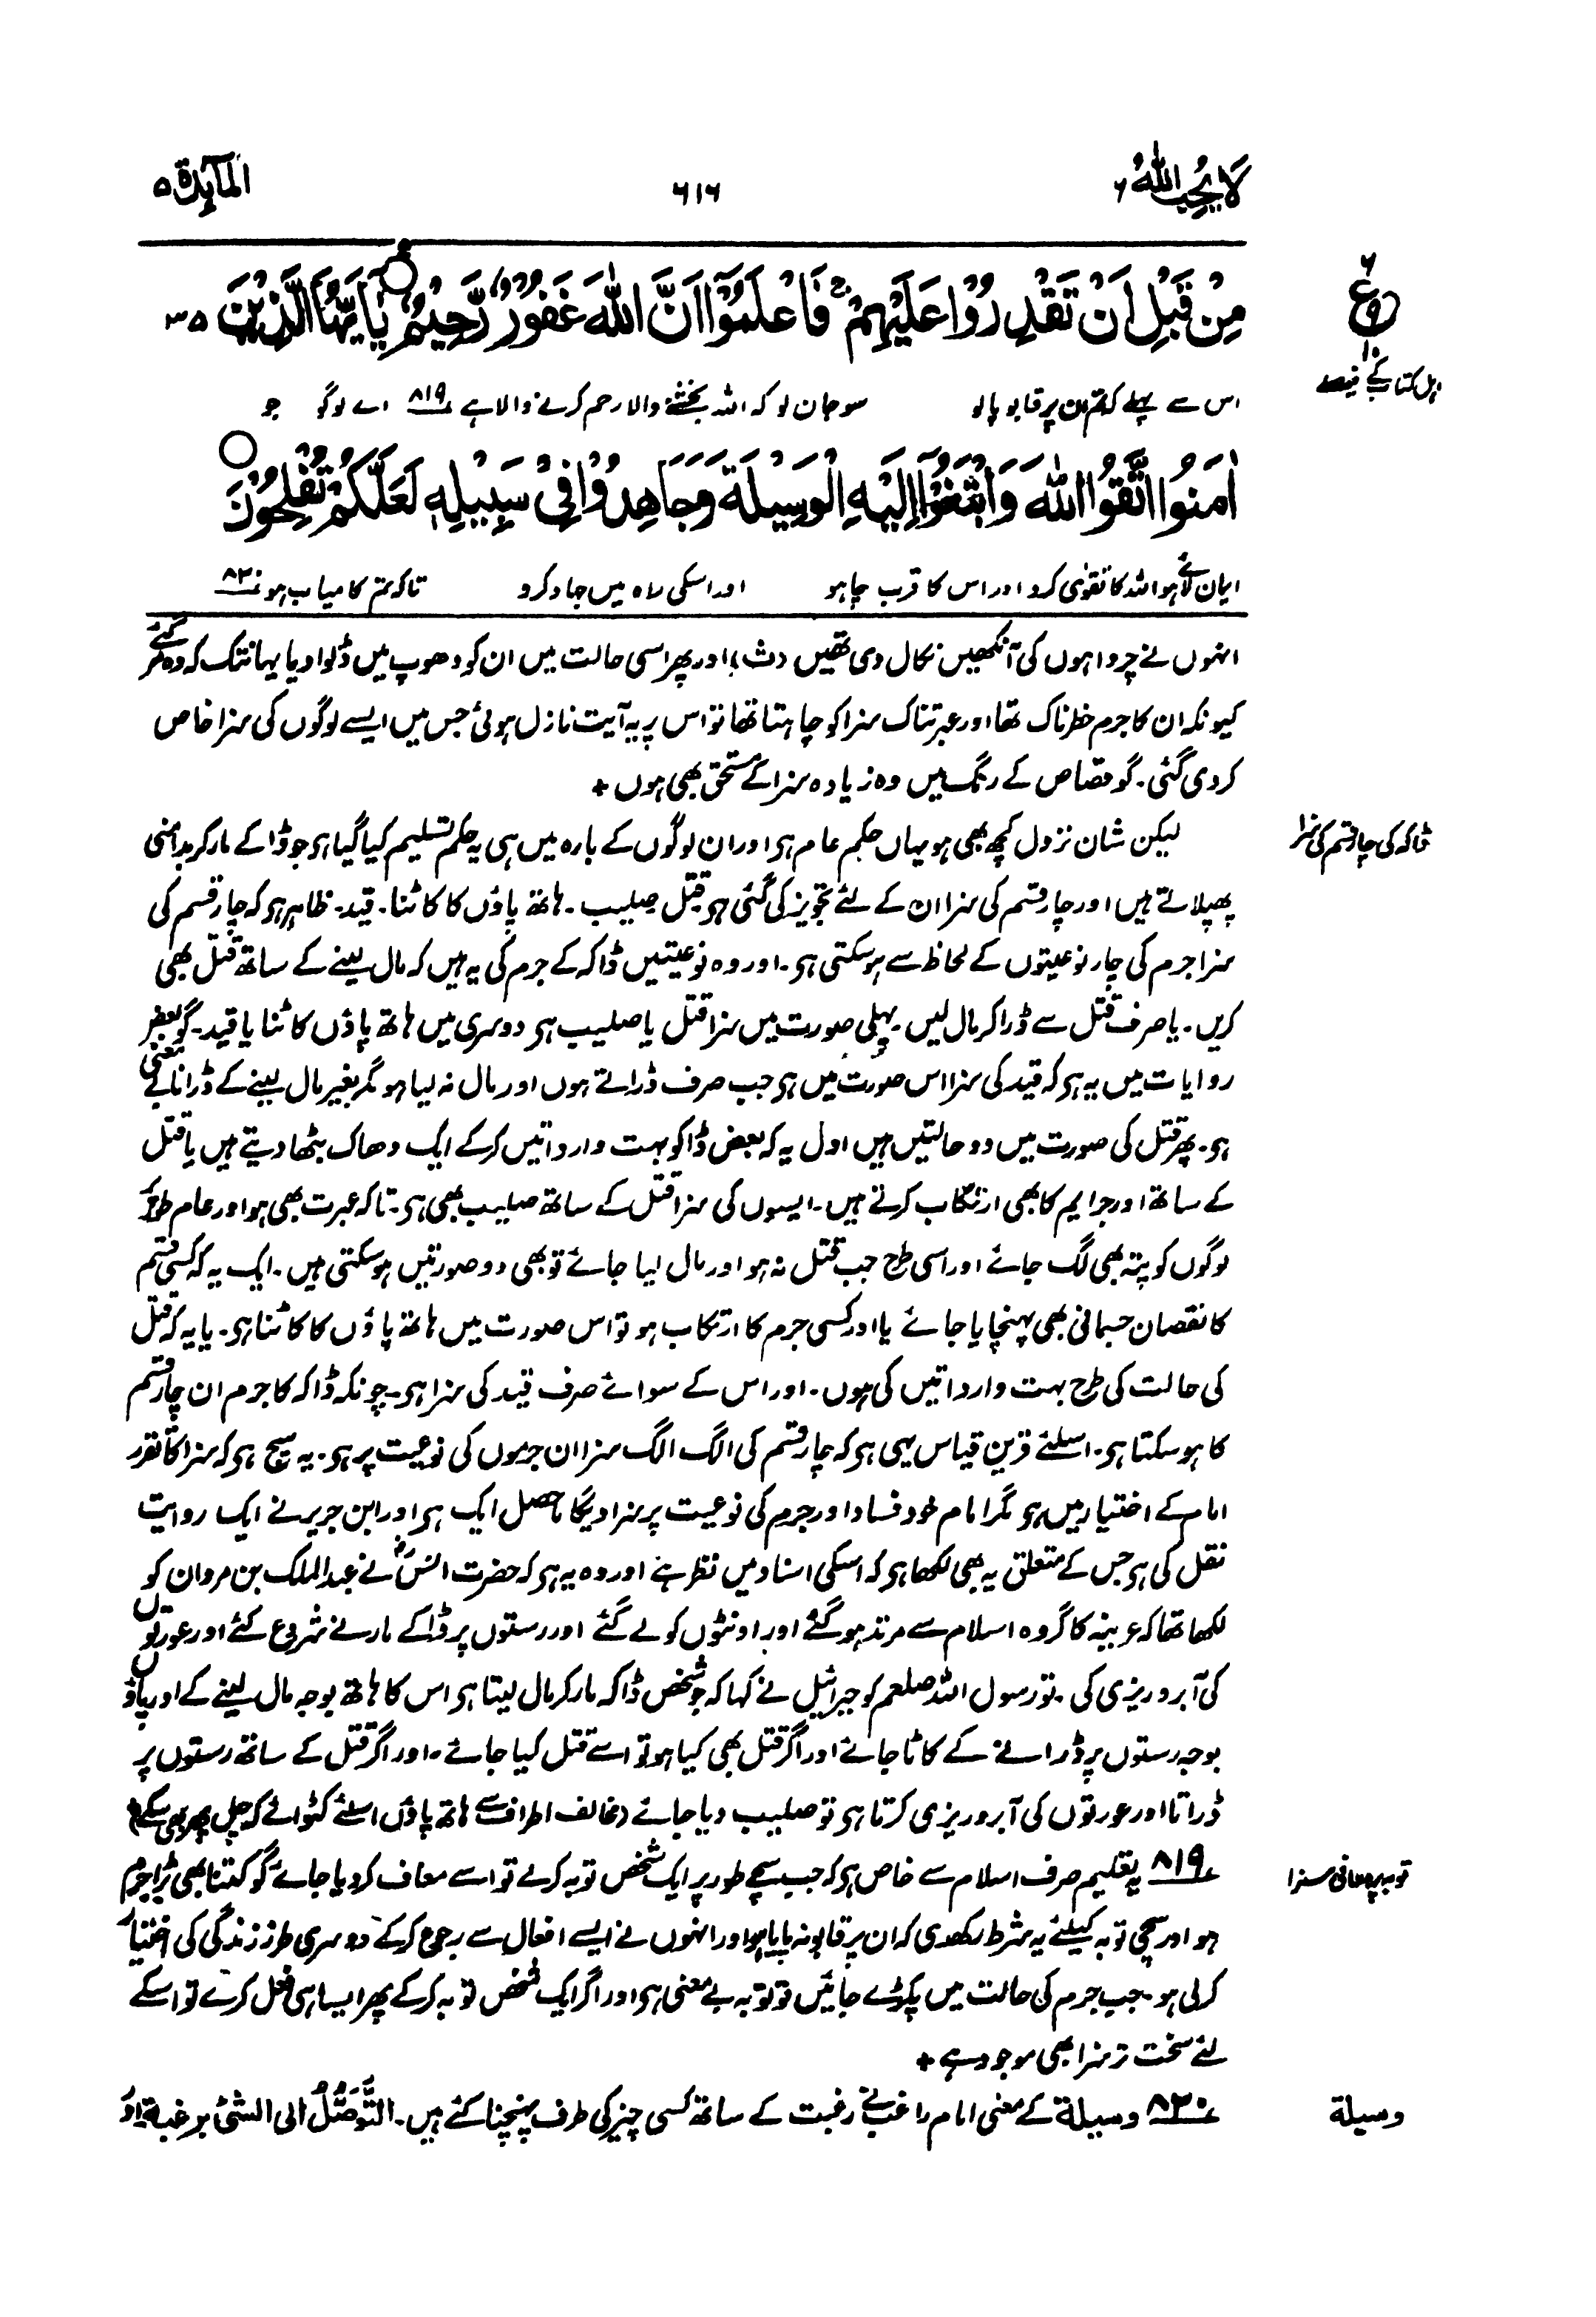 لَا يُحِبُّ اللهُ ۶
۶۱۶
المَآئِدَة ۵
مِنْ قَبْلِ اَنْ تَقْدِرُوْا عَلَيْهِمْ ۚ فَاعْلَمُوْۤا اَنَّ اللهَ غَفُوْرٌ رَّحِيْمٌ يٰۤاَيُّهَا الَّذِيْنَ ۳۵
ع
۶
۱۰
اہل کتاب کے فیصلے
اس سے پہلے کہ تم ان پر قابو پا لو سو جان لو کہ اللہ بخشنے والا رحم کرنے والا ہے ۸۱۹ اے لوگو جو
اٰمَنُوا اتَّقُوا اللهَ وَابْتَغُوْۤا اِلَيْهِ الْوَسِيْلَةَ وَجَاهِدُوْا فِيْ سَبِيْلِهٖ لَعَلَّكُمْ تُفْلِحُوْنَ
ایمان لائے ہو اللہ کا تقوٰی کرو اور اس کا قرب چاہو اور اسکی راہ میں جہاد کرو تاکہ تم کامیاب ہو ۸۲۰
انہوں نے چرواہوں کی آنکھیں نکال دی تھیں (ث) اور پھر اسی حالت میں ان کو دھوپ میں ڈلوا دیا یہانتک کہ وہ مر گئے
کیونکہ ان کا جرم خطرناک تھا اور عبرتناک سزا کو چاہتا تھا تو اس پر یہ آیت نازل ہوئی جس میں ایسے لوگوں کی سزا خاص
کر دی گئی۔ گو قصاص کے رنگ میں وہ زیادہ سزا کے مستحق بھی ہوں +
ڈاکہ کی چار قسم کی سزا
لیکن شان نزول کچھ بھی ہو یہاں حکم عام ہو اور ان لوگوں کے بارہ میں ہی یہ حکم تسلیم کیا گیا ہو جو ڈاکے مار کر بدامنی
پھیلاتے ہیں اور چار قسم کی سزا ان کے لئے تجویز کی گئی ہو قتل۔ صلیب۔ ہاتھ پاؤں کا کاٹنا۔ قید۔ ظاہر ہو کہ چار قسم کی
سزا جرم کی چار نوعیتوں کے لحاظ سے ہو سکتی ہو۔ اور وہ نوعیتیں ڈاکہ کے جرم کی یہ ہیں کہ مال لینے کے ساتھ قتل بھی
کریں۔ یا صرف قتل سے ڈرا کر مال لیں۔ پہلی صورت میں سزا قتل یا صلیب ہو دوسری میں ہاتھ پاؤں کاٹنا یا قید۔ گو بعض
روایات میں یہ ہو کہ قید کی سزا اس صورت میں ہو جب صرف ڈراتے ہوں اور مال نہ لیا ہو مگر بغیر مال لینے کے ڈرانا بے معنی
ہو۔ پھر قتل کی صورت میں دو حالتیں ہیں اول یہ کہ بعض ڈاکو بہت وارداتیں کرکے ایک دھاک بٹھا دیتے ہیں یا قتل
کے ساتھ اور جرایم کا بھی ارتکاب کرتے ہیں۔ ایسوں کی سزا قتل کے ساتھ صلیب بھی ہو۔ تاکہ عبرت بھی ہو اور عام طور پر
لوگوں کو پتہ بھی لگ جائے اور اسی طرح جب قتل نہ ہو اور مال لیا جائے تو بھی دو صورتیں ہو سکتی ہیں۔ ایک یہ کہ کسی قسم
کا نقصان جسمانی بھی پہنچایا جائے یا اور کسی جرم کا ارتکاب ہو تو اس صورت میں ہاتھ پاؤں کا کاٹنا ہو۔ یا یہ کہ قتل
کی حالت کی طرح بہت وارداتیں کی ہوں۔ اور اس کے سوائے صرف قید کی سزا ہو۔ چونکہ ڈاکہ کا جرم ان چار قسم
کا ہو سکتا ہو۔ اسلئے قرین قیاس یہی ہو کہ چار قسم کی الگ الگ سزا ان جرموں کی نوعیت پر ہو۔ یہ سچ ہو کہ سزا کا تقرر
امام کے اختیار میں ہو مگر امام خود فساد اور جرم کی نوعیت پر سزا دیگا ماحصل ایک ہو اور ابن جریر نے ایک روایت
نقل کی ہو جس کے متعلق یہ بھی لکھا ہو کہ اسکی اسناد میں نظر ہے اور وہ یہ ہو کہ حضرت انسؓ نے عبد الملک بن مروان کو
لکھا تھا کہ عرینہ کا گروہ اسلام سے مرتد ہو گئے اور اونٹوں کو لے گئے اور رستوں پر ڈاکے مارنے شروع کئے اور عورتوں
کی آبروریزی کی۔ تو رسول اللہ صلعم کو جبرائیل نے کہا کہ جو شخص ڈاکہ مار کر مال لیتا ہو اس کا ہاتھ بوجہ مال لینے کے اور پاؤں
بوجہ رستوں پر ڈرانے کے کاٹا جائے اور اگر قتل بھی کیا ہو تو اسے قتل کیا جائے۔ اور اگر قتل کے ساتھ رستوں پر
ڈراتا اور عورتوں کی آبروریزی کرتا ہو تو صلیب دیا جائے (مخالف اطراف سے ہاتھ پاؤں اسلئے کٹوائے کہ چل پھر بھی سکے)
توبہ پر معافی سزا
۸۱۹ یہ تعلیم صرف اسلام سے خاص ہو کہ جب سچے طور پر ایک شخص توبہ کرلے تو اسے معاف کر دیا جائے گو کتنا بھی بڑا جرم
ہو اور سچی توبہ کیلئے یہ شرط رکھدی کہ ان پر قابو نہ پایا ہو اور انہوں نے ایسے افعال سے رجوع کرکے دوسری طرز زندگی کی اختیار
کر لی ہو۔ جب جرم کی حالت میں پکڑے جائیں تو توبہ بے معنی ہو اور اگر ایک شخص توبہ کرکے پھر ایسا ہی فعل کرے تو اسکے
لئے سخت تر سزا بھی موجود ہے +
وسیلة
۸۲۰ وسیلة کے معنی امام راغب نے رغبت کے ساتھ کسی چیز کی طرف پہنچنا کئے ہیں۔ التَّوَصُّلُ الی الشئ برغبة اور